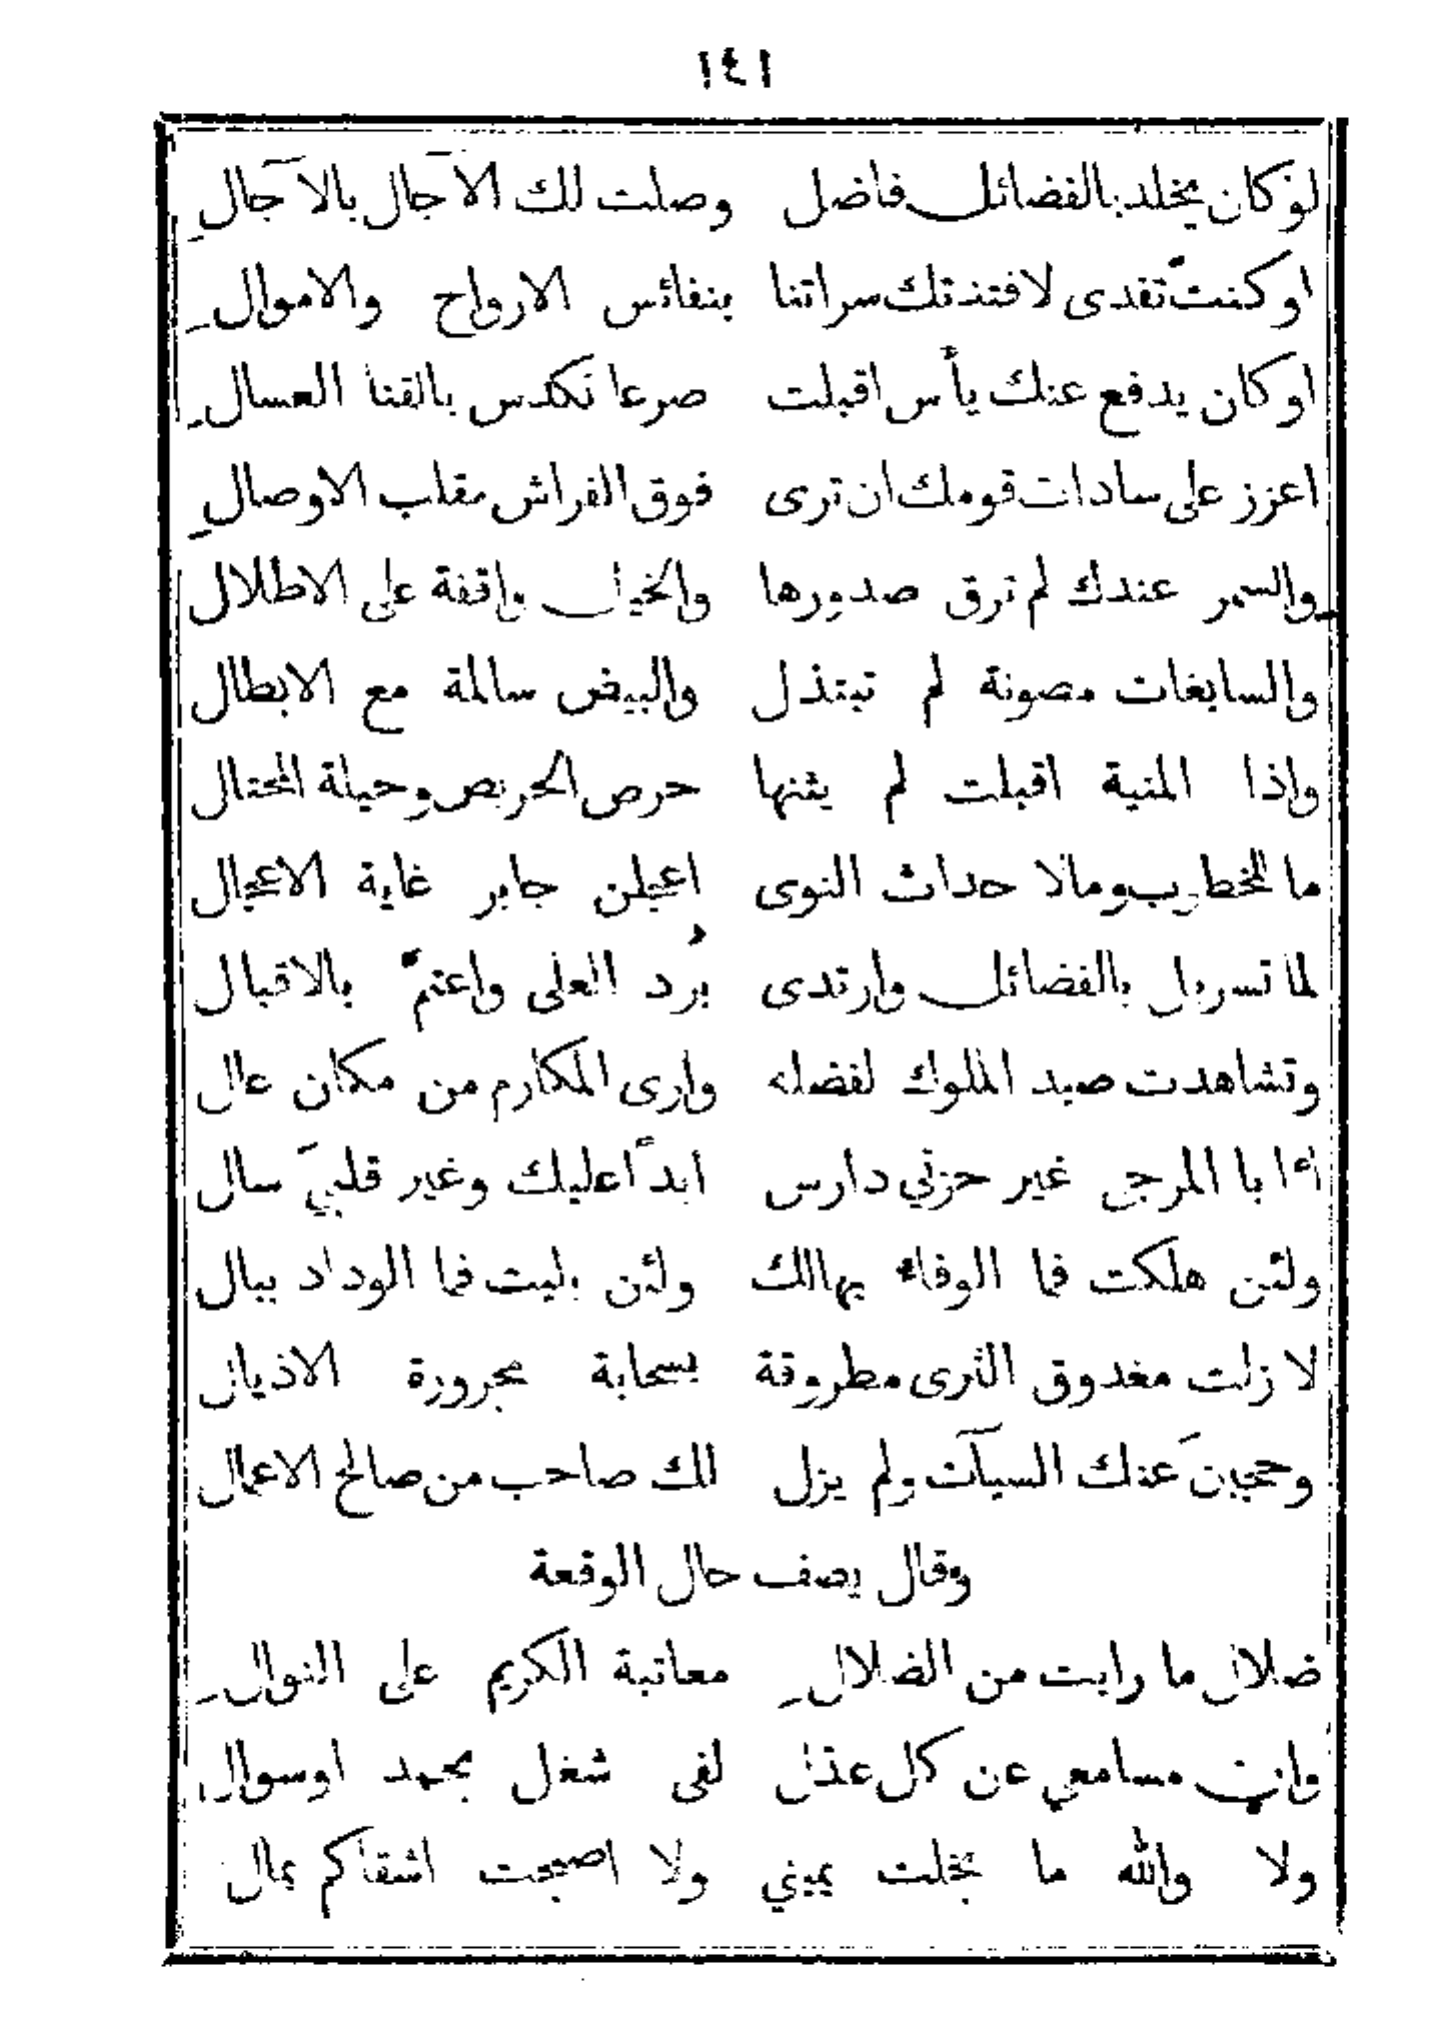 ١٤١
لوكان يخلد بالفضائل فاضل وصلت لك الآجال بالآجال
اوكنت تفدى لافتدتك سراتنا بنفائس الارواح والاموال
اوكان يدفع عنك يأس اقبلت صرعا تكدس بالقنا العسال
اعزز على سادات قومك ان ترى فوق الفراش مقلب الاوصال
والسمر عندك لم ترق صدورها والخيل واقفة على الاطلال
والسابغات مصونة لم تبتذل والبيض سالمة مع الابطال
واذا المنية اقبلت لم يثنها حرص الحريص وحيلة المحتال
ما للخطوب ومالا حداث النوى اعجلن جابر غاية الاعجال
لما تسربل بالفضائل وارتدى بُرد العلى واعتمّ بالاقبال
وتشاهدت صيد الملوك لفضله وارى المكارم من مكان عال
أأبا المرجى غير حزني دارس ابداً عليك وغير قلبيَ سال
ولئن هلكت فما الوفاء بهالك ولئن بليت فما الوداد ببال
لا زلت مغدوق الثرى مطروقة بسحابة مجرورة الاذيال
وحجبنَ عنك السيآت ولم يزل لك صاحب من صالح الاعمال
وقال يصف حال الوقعة
ضلال ما رايت من الضلال معاتبة الكريم على النوال
وان مسامعي عن كل عذل لفى شغل بحمد اوسوال
ولا والله ما بخلت يميني ولا اصبحت اشقاكم بمال